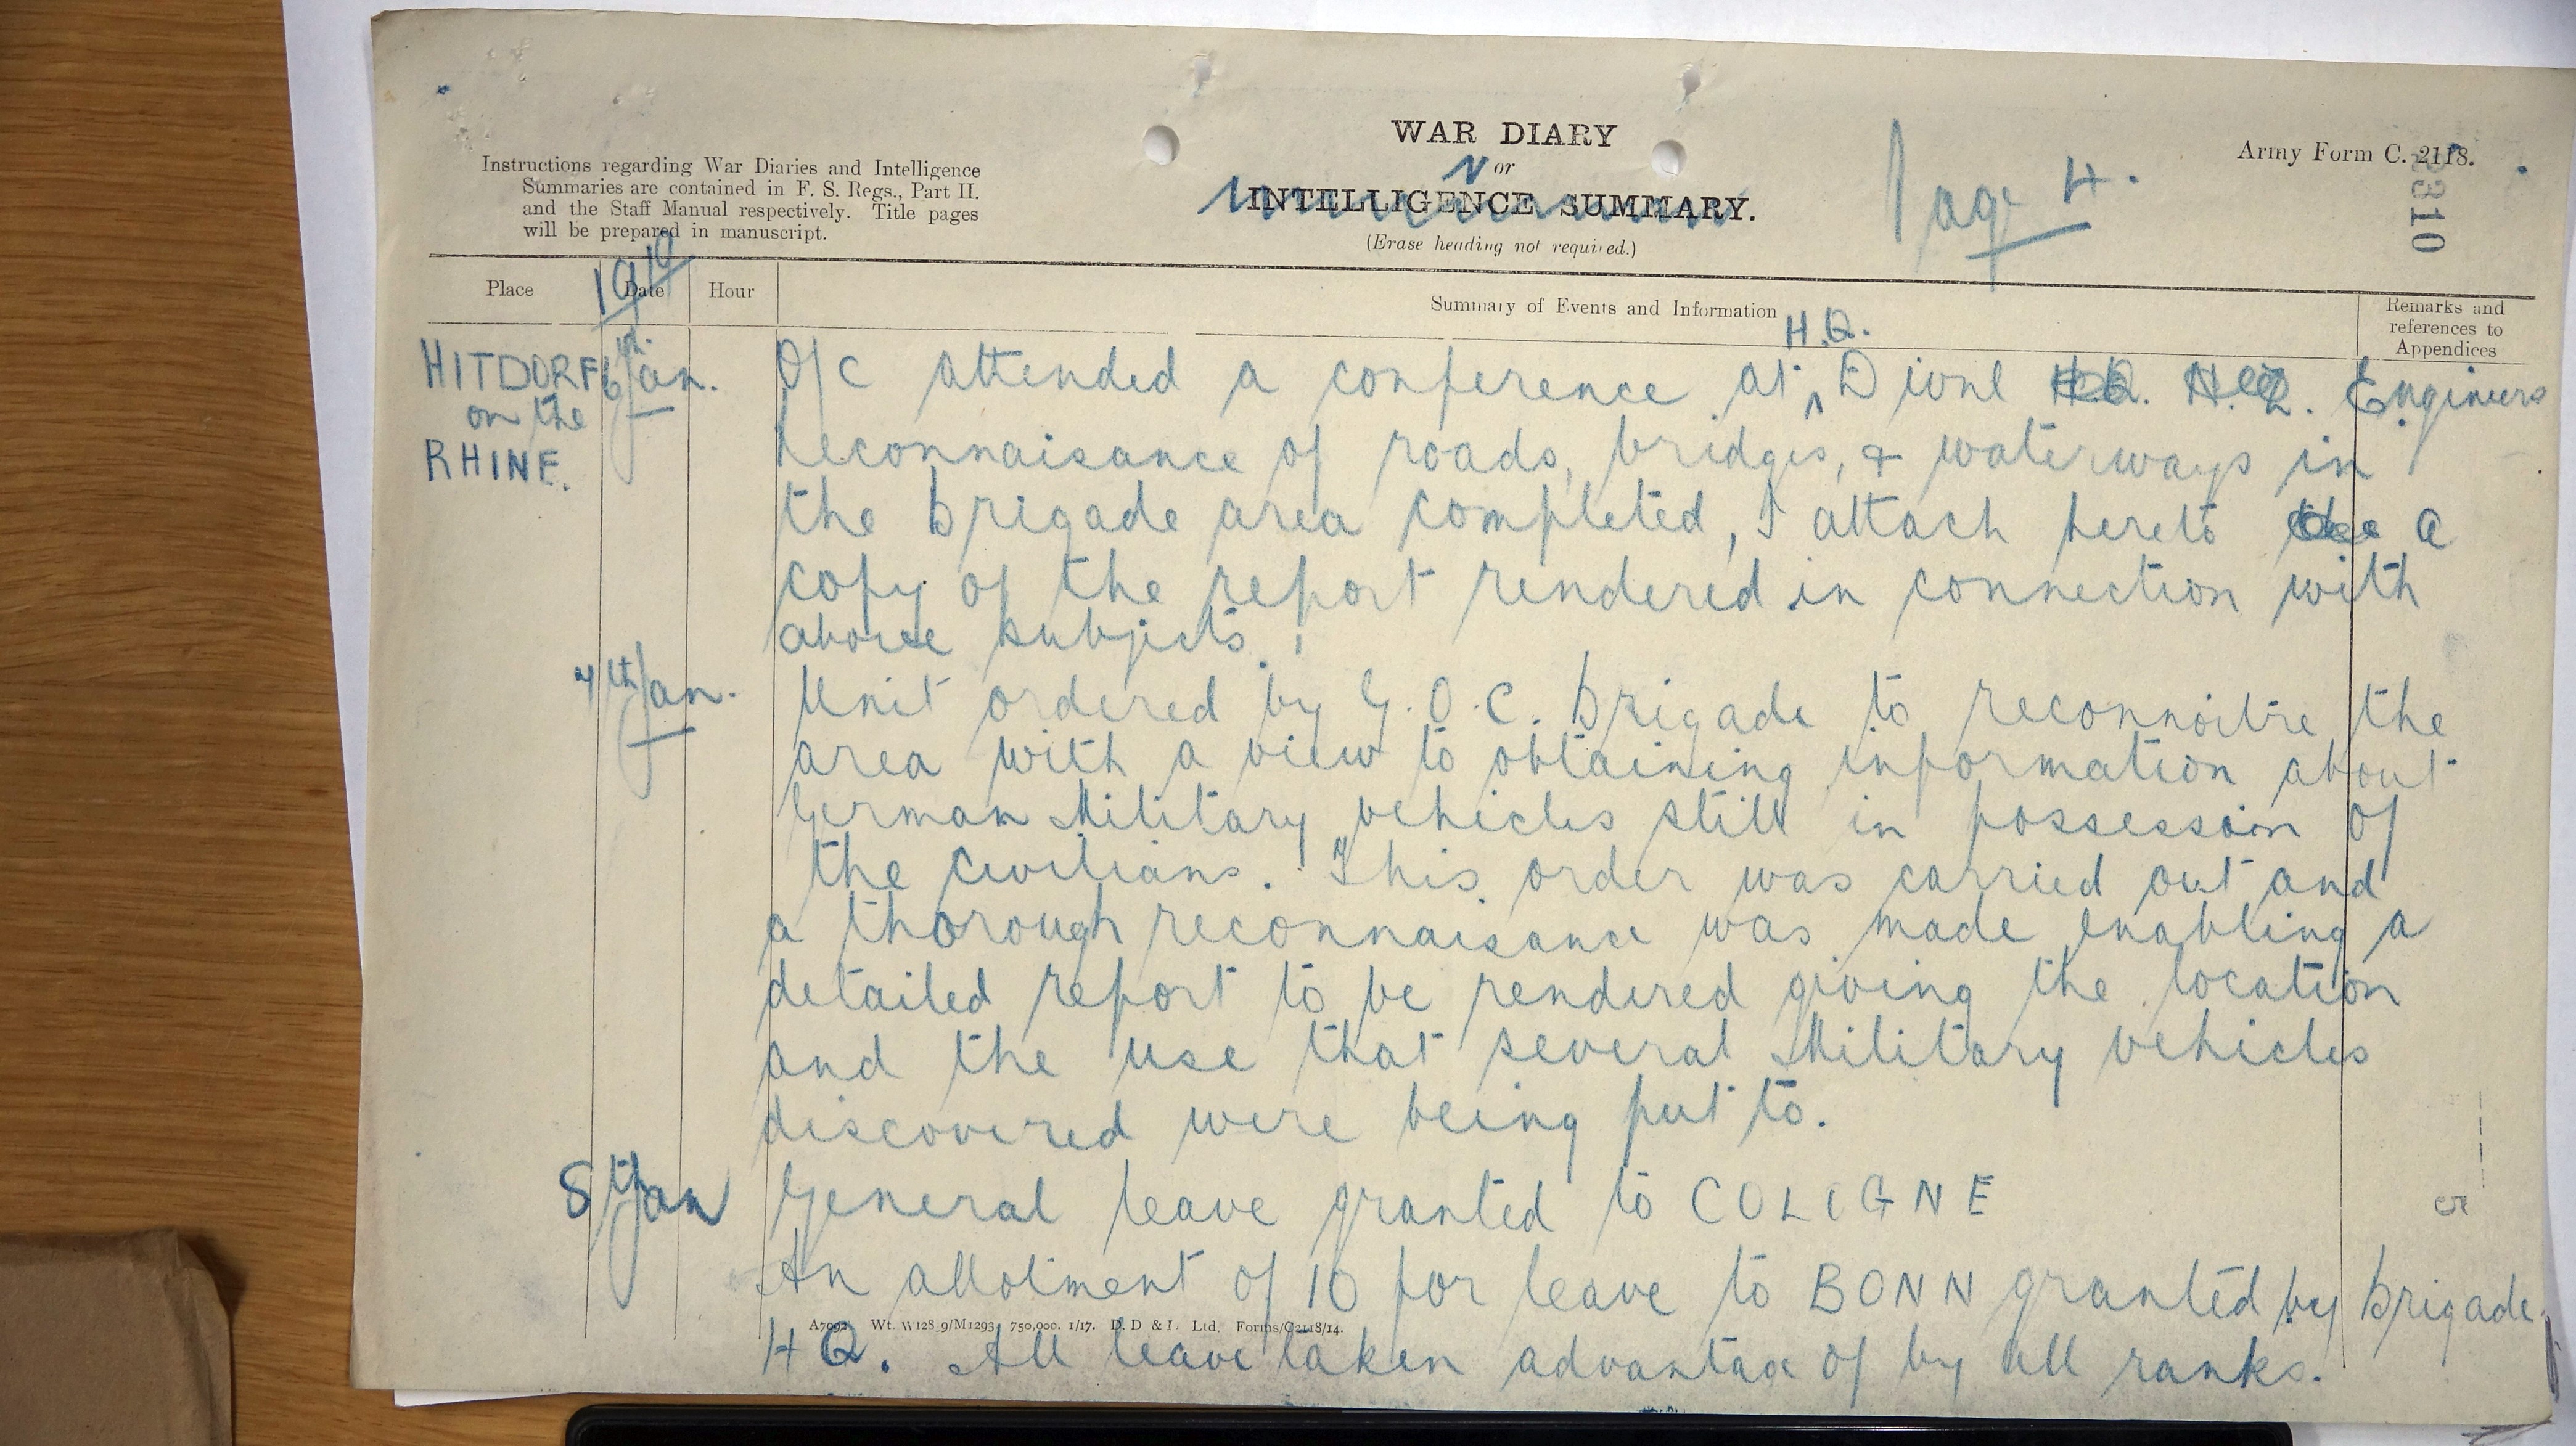 WAR DIARY
or
INTELLIGENCE SUMMARY.
(Erase heading not required.)
Instructions regarding War Diaries and Intelligence
Summaries are contained in F. S. Regs., Part II.
and the Staff Manual respectively. Title pages
will be prepared in manuscript.
Page 4.
Army Form C. 2118.
2310
1919
Place Date Hour Summary of Events and Information Remarks and references to Appendices
HITDORF 6th Jan. O/C attended a conference at H.Q. Divnl Engineers
on the RHINE. Reconnaisance of roads, bridges, & waterways in
the brigade area completed, I attach hereto a
copy of the report rendered in connection with
above subjects.
7th Jan. Unit ordered by G.O.C. Brigade to reconnoitre the
area with a view to obtaining information about
German Military vehicles still in possession of
the civilians. This order was carried out and
a thorough reconnaisance was made enabling a
detailed report to be rendered giving the location
and the use that several Military vehicles
discovered were being put to.
8th Jan General leave granted to COLOGNE
An allotment of 10 for leave to BONN granted by Brigade
H Q. All leave taken advantage of by all ranks.
A7092 Wt. W128.9/M1293 750,000. 1/17. D. D & L Ltd. Forms/C2118/14.